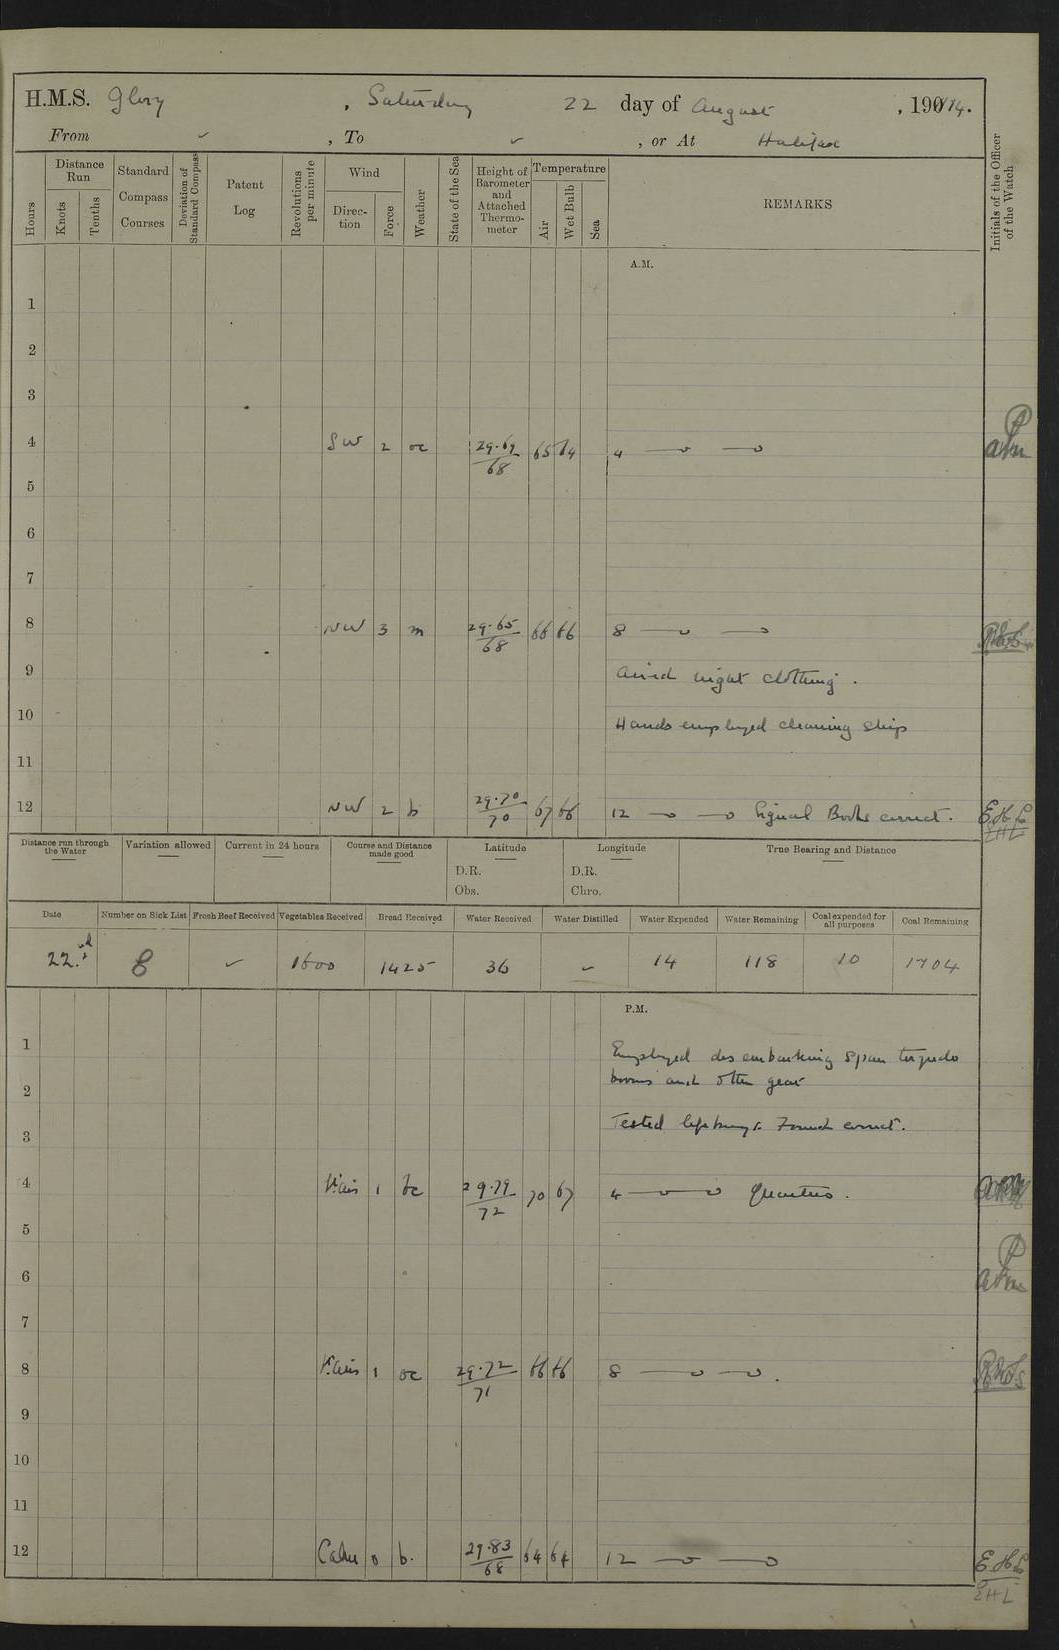 H.M.S. Glory, Saturday 22 day of August, 1914.
From ✓, To ✓, or At Halifax
Hours
Distance Run
Knots
Tenths
Standard Compass Courses
Deviation of Standard Compass
Patent Log
Revolutions per minute
Wind
Direction
Force
Weather
State of the Sea
Height of Barometer and Attached Thermometer
Temperature
Air
Wet Bulb
Sea
REMARKS
Initials of the Officer of the Watch
A.M.
1
2
3
4 SW 2 oc 29.69/68 65 64 4
5
6
7
8 NW 3 m 29.65/68 66 66 8
9 Aired night clothing.
10 Hands employed cleaning ship
11
12 NW 2 b 29.70/70 67 66 12 Signal Books correct. E.H.L.
EHL
Distance run through the Water
Variation allowed
Current in 24 hours
Course and Distance made good
Latitude
D.R.
Obs.
Longitude
D.R.
Chro.
True Bearing and Distance
Date Number on Sick List Fresh Beef Received Vegetables Received Bread Received Water Received Water Distilled Water Expended Water Remaining Coal expended for all purposes Coal Remaining
22nd 8 ✓ 1600 1425 36 ✓ 14 118 10 1704
P.M.
1 Employed disembarking spare torpedo
booms and other gear
2
3 Tested lifebuoys. Found correct.
4 Vairs 1 bc 29.79/72 70 67 4 Quarters.
5
6
7
8 Vairs 1 oc 29.72/71 66 66 8
9
10
11
12 Calm 0 b. 29.83/68 64 64 12 E.H.L.
EHL